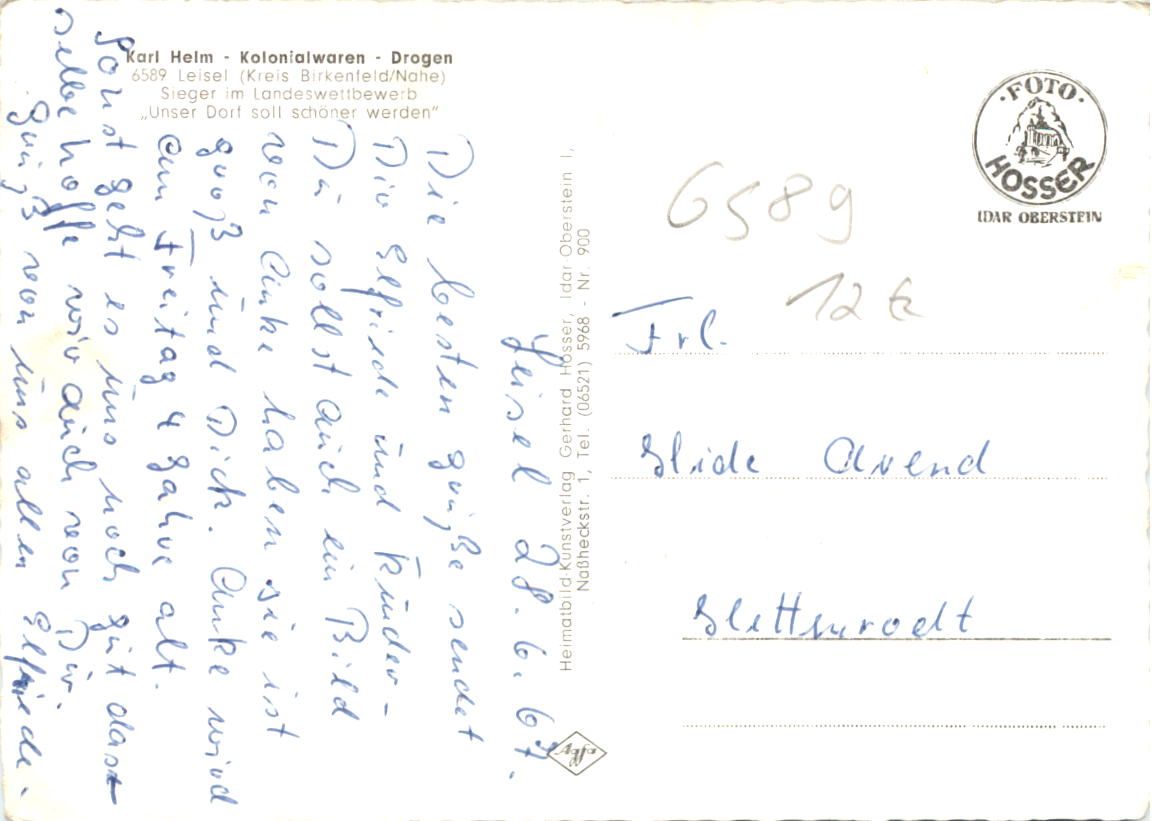 Karl Helm - Kolonialwaren - Drogen
6589 Leisel (Kreis Birkenfeld/Nahe)
Sieger im Landeswettbewerb
„Unser Dorf soll schöner werden"
Leisel 28.6.67.
Die besten grüße sendet
Dir Elfriede und Kinder -
Du sollst auch ein Bild
von Anke haben sie ist
groß und Dick. Anke wird
am Freitag 4 Jahre alt.
Sonst geht es uns noch gut dast
selbe hoffe wir auch von Dir.
gruß von uns allen Elfriede.
Heimatbild-Kunstverlag Gerhard Hosser, Idar-Oberstein I,
Naßheckstr. 1, Tel. (06521) 5968 - Nr. 900
Agfa
·FOTO·
HOSSER
IDAR OBERSTEIN
6589
12 E
Frl.
Arend